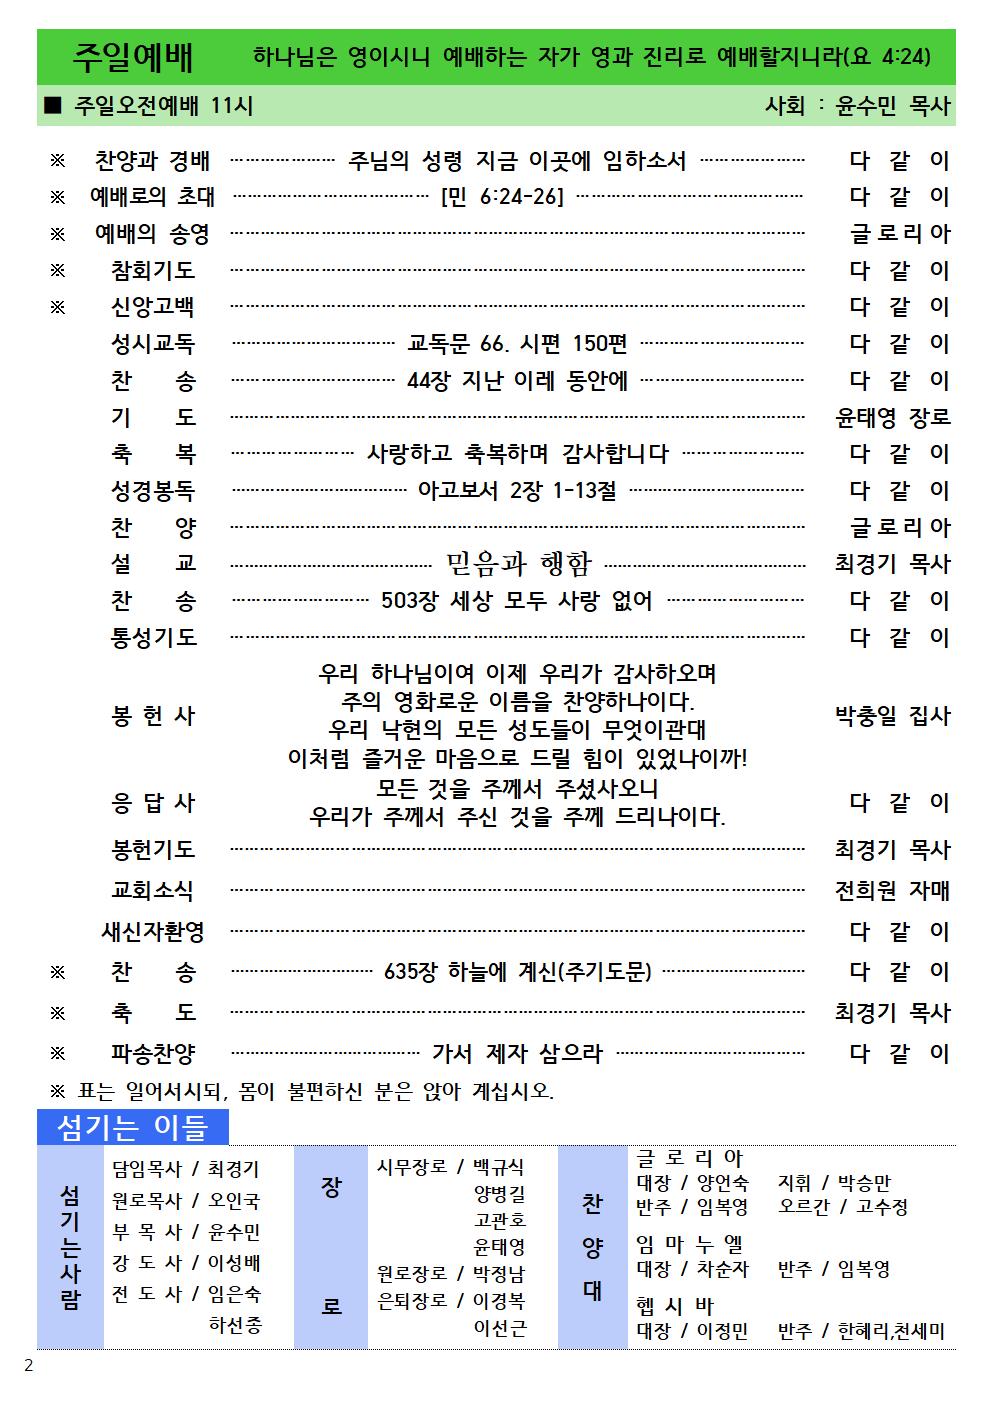 주일예배 하나님은 영이시니 예배하는 자가 영과 진리로 예배할지니라(요 4:24)
■ 주일오전예배 11시 사회 : 윤수민 목사
※ 찬양과 경배 ………………… 주님의 성령 지금 이곳에 임하소서 ………………… 다 같 이
※ 예배로의 초대 ………………… [민 6:24-26] ………………… 다 같 이
※ 예배의 송영 ………………… 글로리아
※ 참회기도 ………………… 다 같 이
※ 신앙고백 ………………… 다 같 이
성시교독 ………………… 교독문 66. 시편 150편 ………………… 다 같 이
찬 송 ………………… 44장 지난 이레 동안에 ………………… 다 같 이
기 도 ………………… 윤태영 장로
축 복 ………………… 사랑하고 축복하며 감사합니다 ………………… 다 같 이
성경봉독 ………………… 야고보서 2장 1-13절 ………………… 다 같 이
찬 양 ………………… 글로리아
설 교 ………………… 믿음과 행함 ………………… 최경기 목사
찬 송 ………………… 503장 세상 모두 사랑 없어 ………………… 다 같 이
통성기도 ………………… 다 같 이
우리 하나님이여 이제 우리가 감사하오며
주의 영화로운 이름을 찬양하나이다.
봉 헌 사 박충일 집사
우리 낙현의 모든 성도들이 무엇이관대
이처럼 즐거운 마음으로 드릴 힘이 있었나이까!
모든 것을 주께서 주셨사오니
응 답 사 다 같 이
우리가 주께서 주신 것을 주께 드리나이다.
봉헌기도 ………………… 최경기 목사
교회소식 ………………… 전희원 자매
새신자환영 ………………… 다 같 이
※ 찬 송 ………………… 635장 하늘에 계신(주기도문) ………………… 다 같 이
※ 축 도 ………………… 최경기 목사
※ 파송찬양 ………………… 가서 제자 삼으라 ………………… 다 같 이
※ 표는 일어서시되, 몸이 불편하신 분은 앉아 계십시오.
섬기는 이들
섬기는사람
담임목사 / 최경기
원로목사 / 오인국
부 목 사 / 윤수민
강 도 사 / 이성배
전 도 사 / 임은숙
하선종
장로
시무장로 / 백규식
양병길
고관호
윤태영
원로장로 / 박정남
은퇴장로 / 이경복
이선근
찬양대
글 로 리 아
대장 / 양언숙 지휘 / 박승만
반주 / 임복영 오르간 / 고수정
임 마 누 엘
대장 / 차순자 반주 / 임복영
헵 시 바
대장 / 이정민 반주 / 한혜리,천세미
2